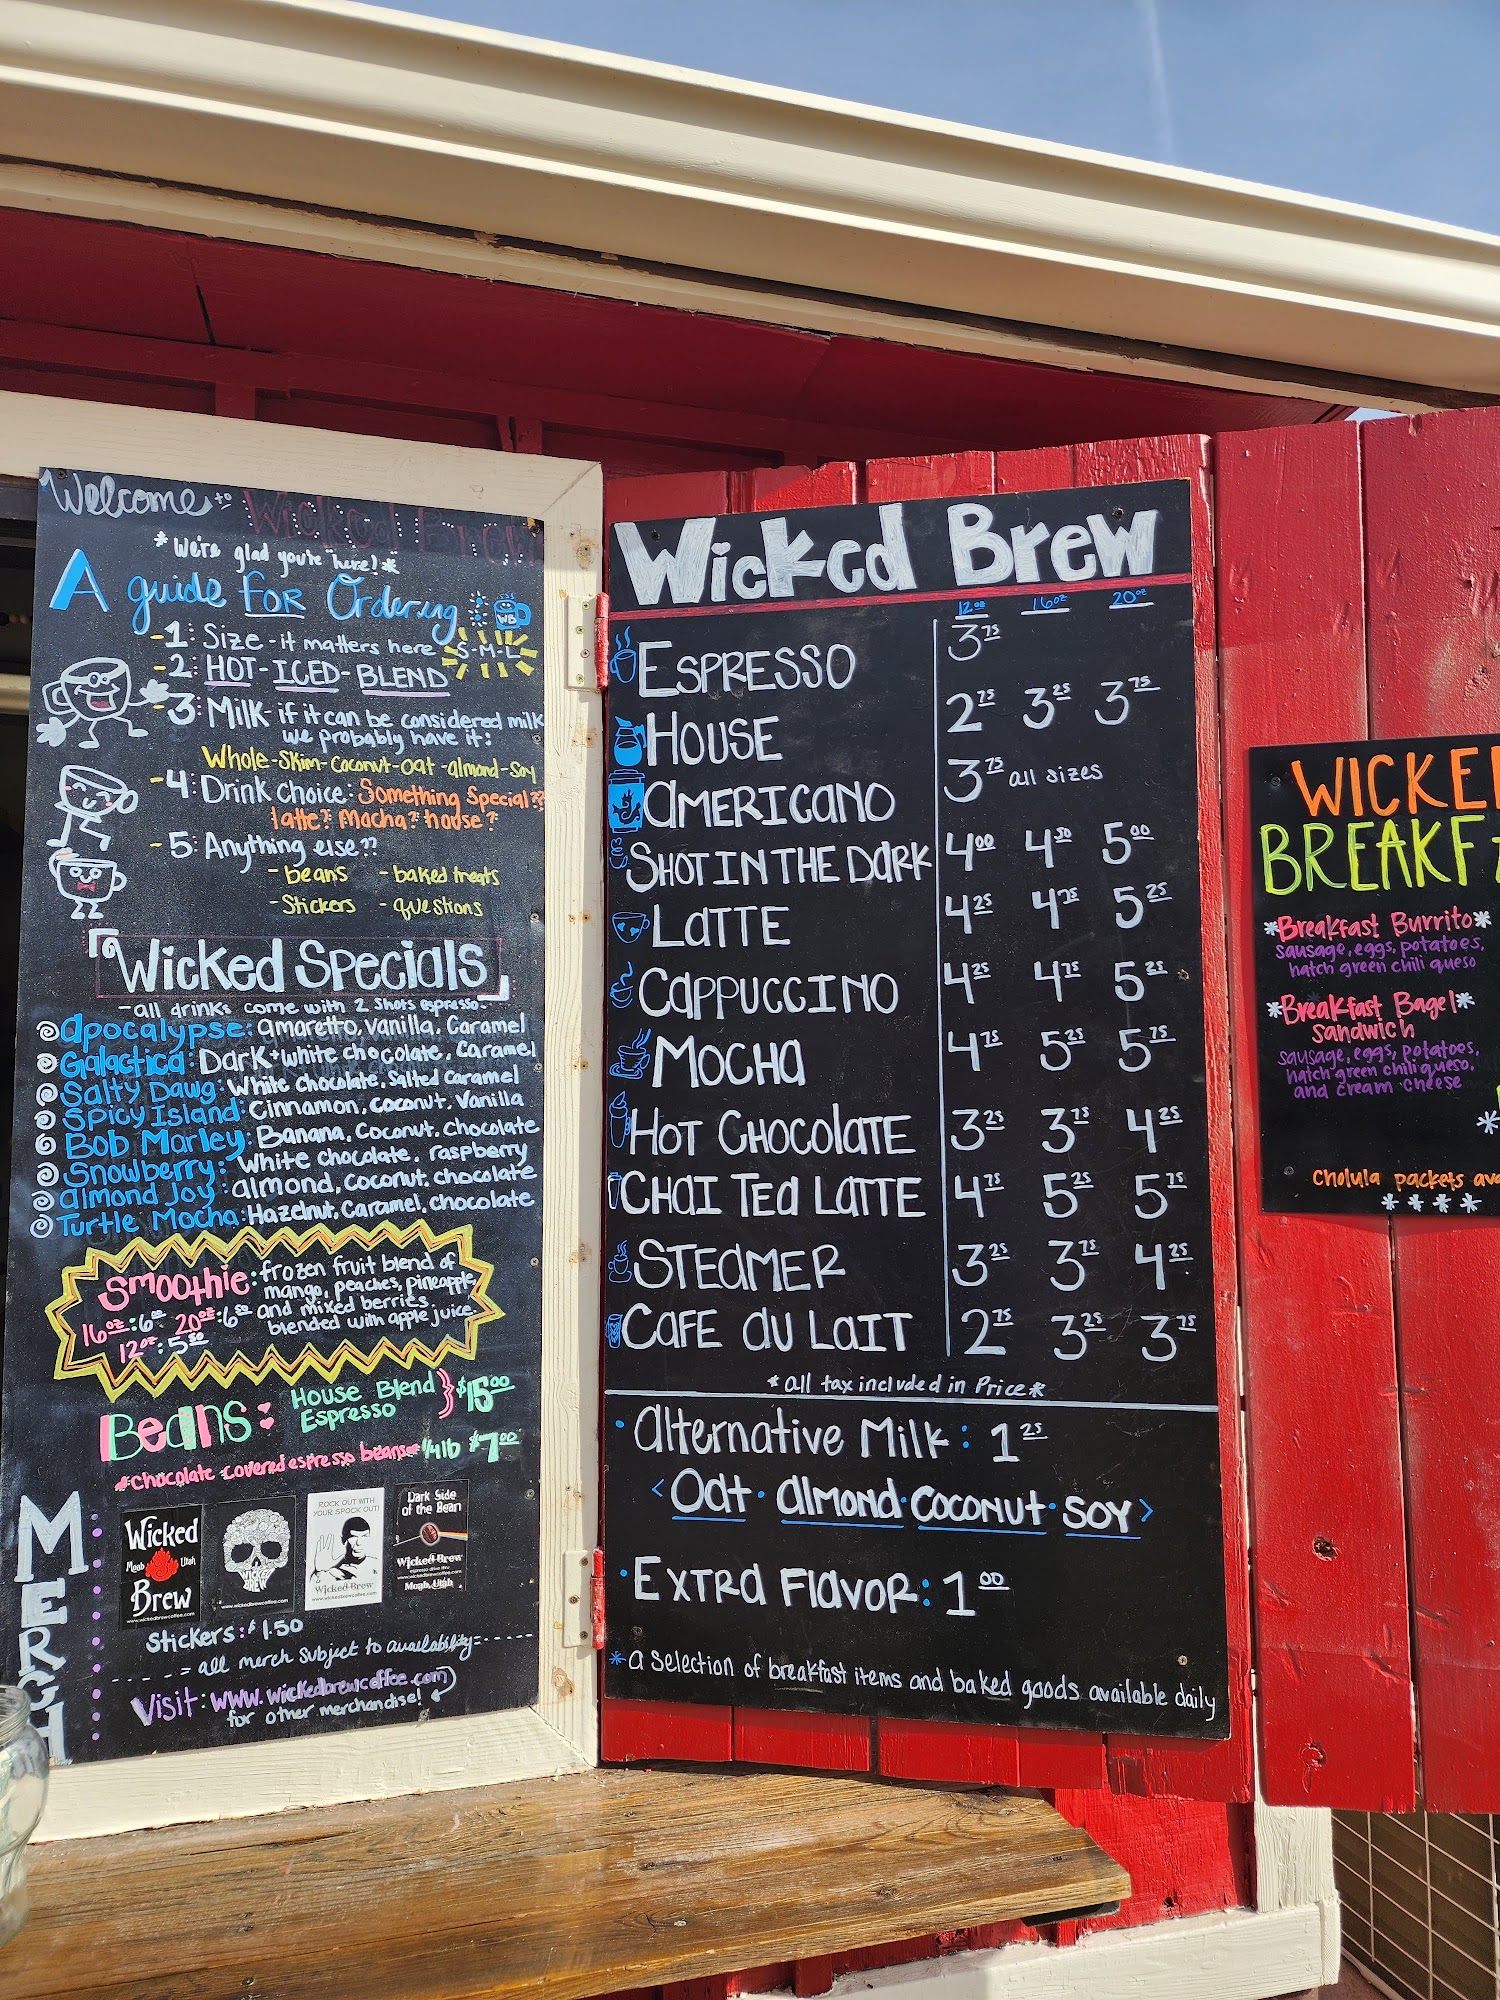 Welcome to Wicked Brew
*We're glad you're here!*
A guide FOR Ordering
WB
-1: Size - it matters here S-M-L
-2: HOT-ICED-BLEND
-3: Milk- if it can be considered milk
we probably have it:
Whole-Skim-Coconut-oat-almond-soy
-4: Drink choice: Something Special??
latte? Mocha? house?
-5: Anything else??
-beans -baked treats
-Stickers -questions
"Wicked Specials"
-all drinks come with 2 shots espresso-
Apocalypse: amaretto, vanilla, Caramel
Galactica: Dark+white chocolate, Caramel
Salty Dawg: White chocolate, Salted Caramel
Spicy Island: Cinnamon, coconut, vanilla
Bob Marley: Banana, Coconut, chocolate
Snowberry: White chocolate, raspberry
Almond Joy: almond, coconut, chocolate
Turtle Mocha: Hazelnut, Caramel, chocolate
Smoothie: frozen fruit blend of
mango, peaches, pineapple,
16oz: 6.00 20oz: 6.50 and mixed berries,
blended with apple juice.
12oz: 5.50
Beans: House Blend
Espresso } $15.00
*chocolate covered espresso beans* 1/4 lb $7.00
MERCH
Wicked
Moab Utah
Brew
www.wickedbrewcoffee.com
WICKED
BREW
www.wickedbrewcoffee.com
ROCK OUT WITH
YOUR SPOCK OUT!
Wicked Brew
www.wickedbrewcoffee.com
Dark Side
of the Bean
Wicked Brew
espresso drive thru
www.wickedbrewcoffee.com
Moab, Utah
Stickers: $1.50
---= all merch subject to availability=-----
Visit: www.wickedbrewcoffee.com
for other merchandise!
Wicked Brew
12oz 16oz 20oz
ESPRESSO 3.75
HOUSE 2.75 3.25 3.75
AMERICANO 3.75 all sizes
SHOT IN THE DARK 4.00 4.50 5.00
LATTE 4.25 4.75 5.25
CAPPUCCINO 4.25 4.75 5.25
MOCHA 4.75 5.25 5.75
HOT CHOCOLATE 3.25 3.75 4.25
CHAI TEA LATTE 4.75 5.25 5.75
STEAMER 3.25 3.75 4.25
CAFE DU LAIT 2.75 3.25 3.75
*all tax included in Price*
• Alternative Milk: 1.25
<Oat • Almond • Coconut • Soy>
• Extra Flavor: 1.00
*a selection of breakfast items and baked goods available daily
WICKE
BREAKF
*Breakfast Burrito*
sausage, eggs, potatoes,
hatch green chili queso
*Breakfast Bagel*
Sandwich
sausage, eggs, potatoes,
hatch green chili queso,
and cream cheese
*
Cholula packets ava
* * * *